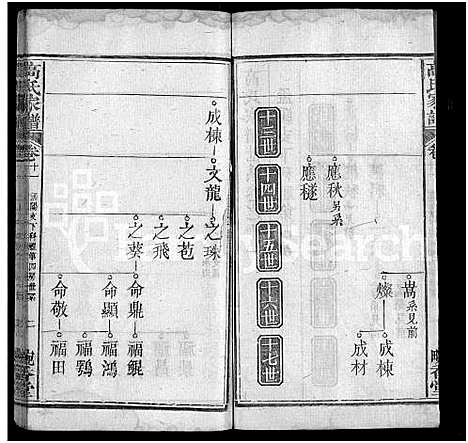 高氏家譜
卷
嵩系見前
燦
成材
成林
應秋另系
應穟
十三世
十四世
十五世
十六世
十七世
成棟
文龍
之珠
之苞
之飛
之葵
命鼎
福鯤
命顯
福鴻
福鶚
命敬
福田
高氏家譜
卷十